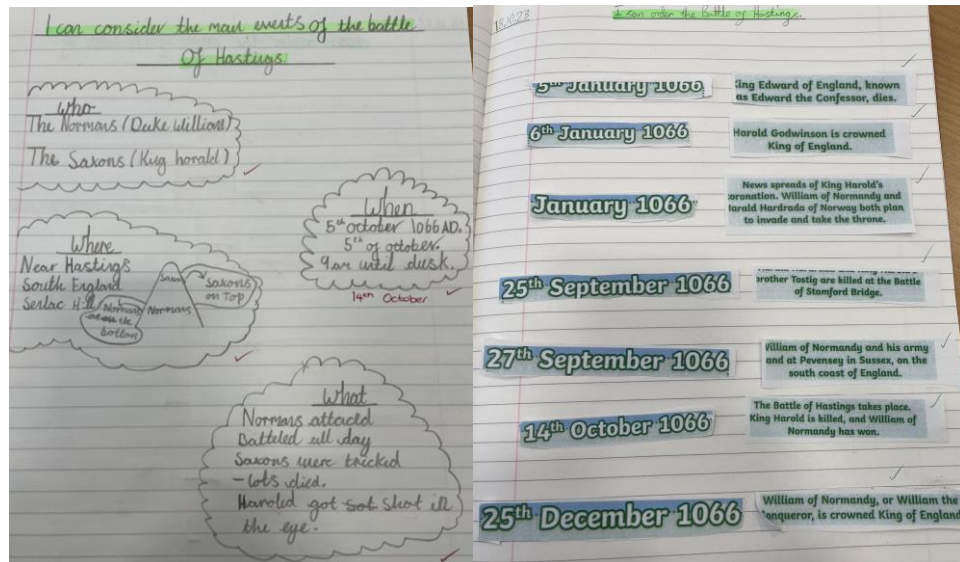 I can consider the main events of the battle
Of Hastings
Who
The Normans (Duke William)
The Saxons (King horald)
When
5th october 1066 AD.
5th of october.
9.am until dusk.
14th October
Where
Near Hastings
South England
Senlac Hill
Saxons
on Top
Normans
Normans
the
bottom
What
Normans attaced
Batteled all day
Saxons were tricked
- Lots died.
Haroled got sot shot in
the eye.
18.10.23
I can order the Battle of Hastings.
5th January 1066
King Edward of England, known
as Edward the Confessor, dies.
6th January 1066
Harold Godwinson is crowned
King of England.
January 1066
News spreads of King Harold's
coronation. William of Normandy and
Harald Hardrada of Norway both plan
to invade and take the throne.
25th September 1066
brother Tostig are killed at the Battle
of Stamford Bridge.
27th September 1066
William of Normandy and his army
land at Pevensey in Sussex, on the
south coast of England.
14th October 1066
The Battle of Hastings takes place.
King Harold is killed, and William of
Normandy has won.
25th December 1066
William of Normandy, or William the
Conqueror, is crowned King of England